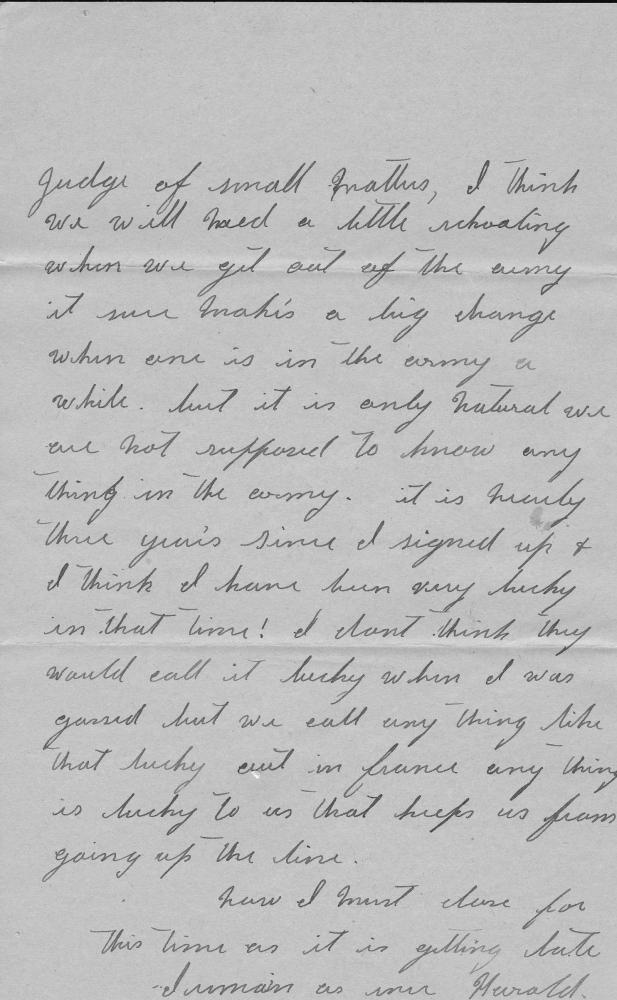 judge of small matters, I think
we will need a little schooling
when we get out of the army
it sure make's a big change
when one is in the army a
while. but it is only natural we
are not supposed to know any
thing in the army. it is nearly
three year's since I signed up &
I think I have been very lucky
in that time! I dont think they
would call it lucky when I was
gassed but we call any thing like
that lucky out in france any thing
is lucky to us that keeps us from
going up the line.
now I must close for
this time as it is getting late
I remain as ever Harold.